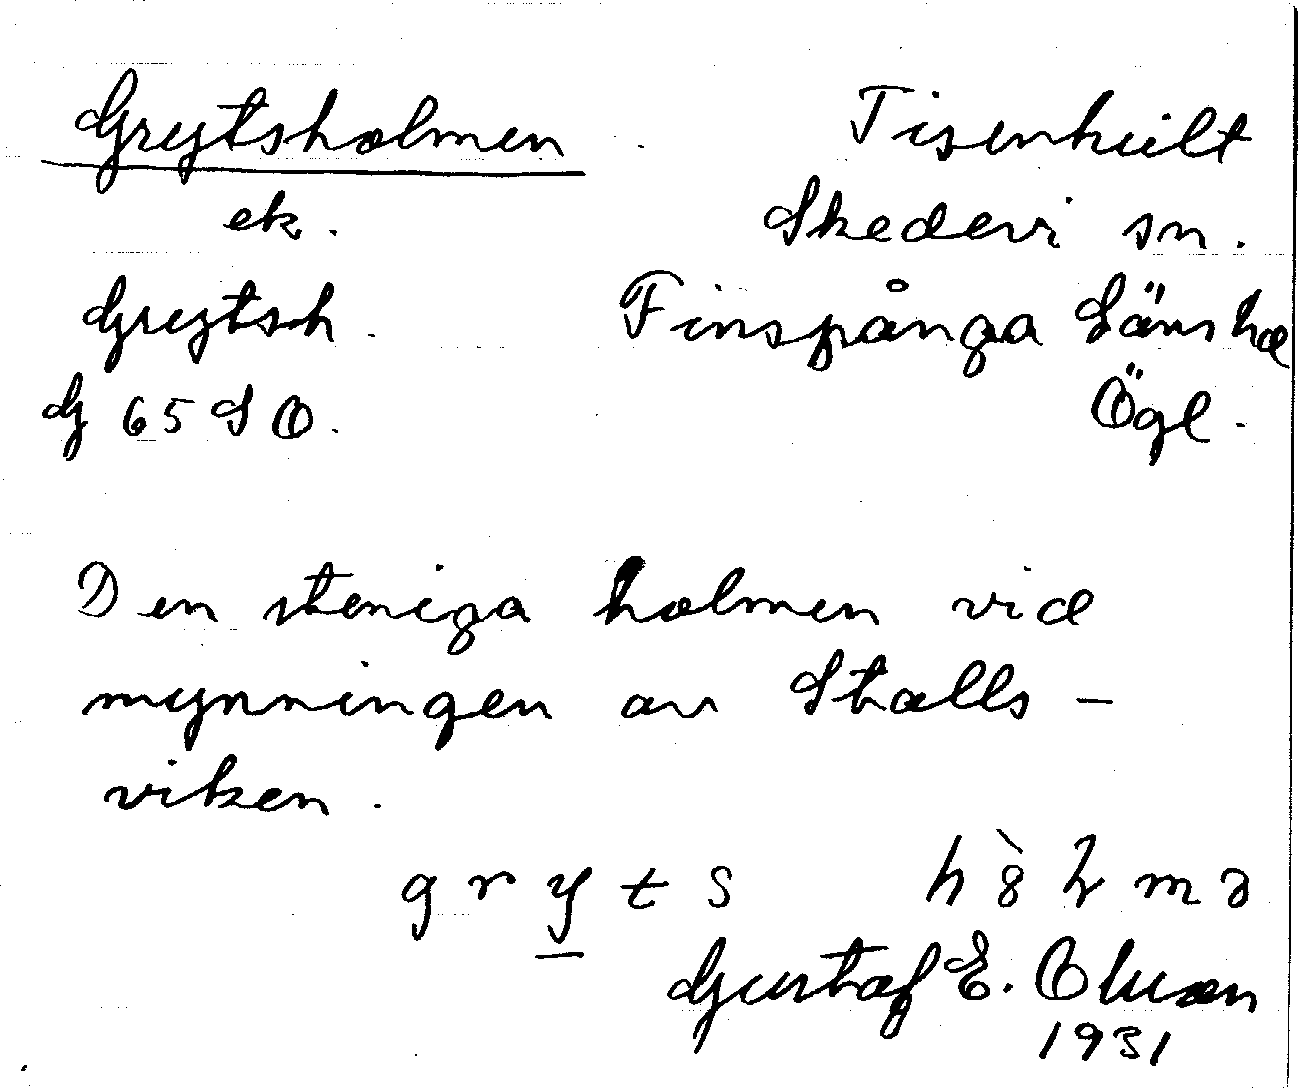 Grytsholmen Tisenhult
ek. Skedevi sn.
Grytsh. Finspånga Läns hd
G 65 S O. Ögl.
Den steniga holmen vid
mynningen av Stalls-
viken.
gryts
Gustaf E.
1931